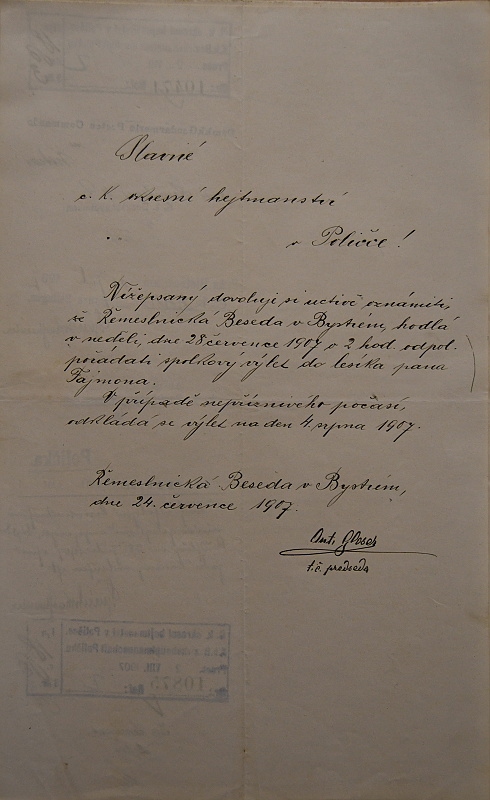 Slavné
c. k. okresní hejtmanství
v Poličce!
Nížepsaný dovoluje si uctivě oznámiti,
že Řemeslnická Beseda v Bystrém, hodlá
v neděli, dne 28 července 1907 o 2 hod. odpol.
pořádati spolkový výlet do lesíka pana
Tajmona.
V případě nepříznivého počasí,
odkládá se výlet na den 4 srpna 1907.
Řemeslnická Beseda v Bystrém,
dne 24. července 1907.
Ant.
t. č. předseda